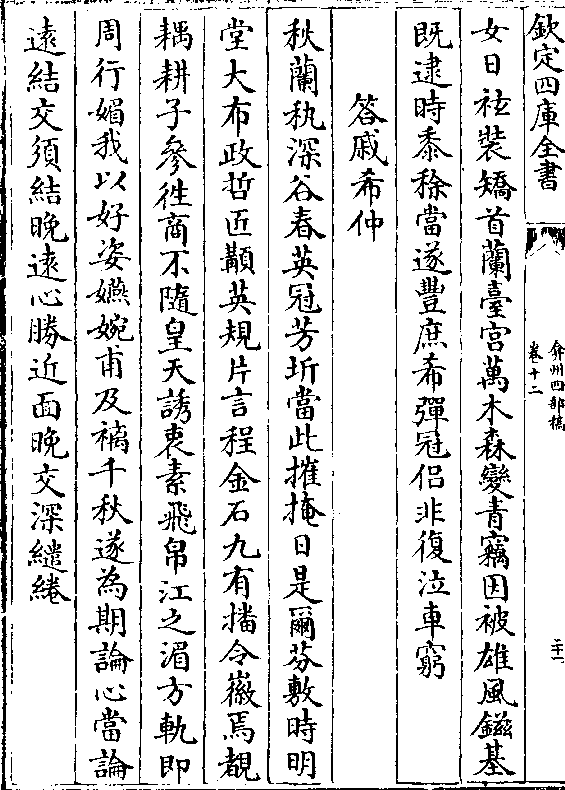 欽定四庫全書
弇州四部稿
卷十二
二十一
女日袨裝矯首蘭臺宮萬木森變青竊因被雄風鎡基
既逮時黍稌當遂豐庶希彈冠侶非復泣車窮
答戚希仲
秋蘭秇深谷春英冠芳圻當此摧掩日是爾芬敷時明
堂大布政哲匠颟英規片言程金石九有播令徽焉覩
耦耕子參徃商不隨皇天誘衷素飛帛江之湄方軌即
周行媚我以好姿嬿婉甫及褵千秋遂為期論心當論
遠結交須結晚遠心勝近面晚交深繾綣